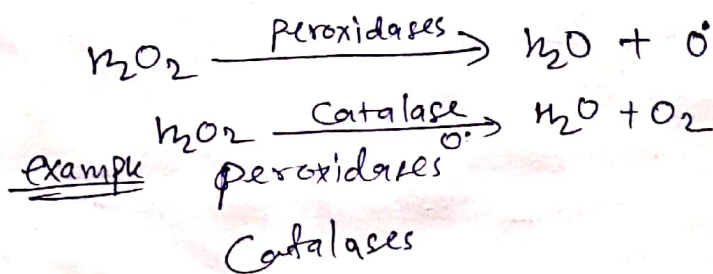 H₂O₂ —peroxidases→ H₂O + O•
H₂O₂ —Catalase→ H₂O + O₂
O:
example peroxidases
Catalases